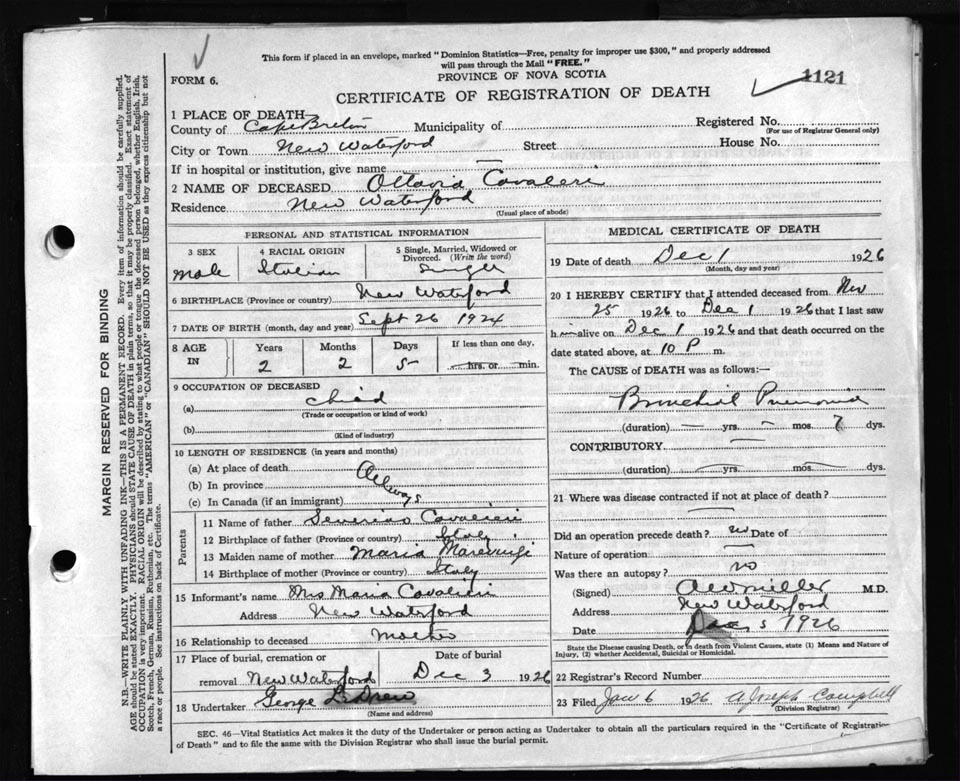 This form if placed in an envelope, marked "Dominion Statistics—Free, penalty for improper use $300," and properly addressed
will pass through the Mail "FREE."
FORM 6.
PROVINCE OF NOVA SCOTIA
1121
CERTIFICATE OF REGISTRATION OF DEATH
1 PLACE OF DEATH—
County of Cape Breton Municipality of Registered No.
(For use of Registrar General only)
City or Town New Waterford Street House No.
If in hospital or institution, give name —
2 NAME OF DECEASED Ottavia Cavaleri
Residence New Waterford
(Usual place of abode)
PERSONAL AND STATISTICAL INFORMATION
3 SEX 4 RACIAL ORIGIN 5 Single, Married, Widowed or
Divorced. (Write the word)
male Italian Single
6 BIRTHPLACE (Province or country) New Waterford
7 DATE OF BIRTH (month, day and year) Sept 26 1924
8 AGE IN Years Months Days If less than one day.
2 2 5 hrs. or min.
9 OCCUPATION OF DECEASED
(a) child
(Trade or occupation or kind of work)
(b)
(Kind of industry)
10 LENGTH OF RESIDENCE (in years and months)
(a) At place of death
(b) In province Always
(c) In Canada (if an immigrant)
Parents
11 Name of father Severino Cavaleri
12 Birthplace of father (Province or country) Italy
13 Maiden name of mother Maria
14 Birthplace of mother (Province or country) Italy
15 Informant's name Mrs Maria Cavaleri
Address New Waterford
16 Relationship to deceased Mother
17 Place of burial, cremation or Date of burial
removal New Waterford Dec 3 1926
18 Undertaker George
(Name and address)
MEDICAL CERTIFICATE OF DEATH
19 Date of death Dec 1 1926
(Month, day and year)
20 I HEREBY CERTIFY that I attended deceased from Nov
25 1926 to Dec 1 1926 that I last saw
him alive on Dec 1 1926 and that death occurred on the
date stated above, at 10 P m.
The CAUSE of DEATH was as follows:—
Bronchial Pneumonia
(duration) — yrs. — mos. 7 dys.
CONTRIBUTORY —
(duration) — yrs. — mos. — dys.
21 Where was disease contracted if not at place of death? —
Did an operation precede death? no Date of —
Nature of operation —
Was there an autopsy? no
(Signed) A W Miller M.D.
Address New Waterford
Date Dec 5 1926
State the Disease causing Death, or in death from Violent Causes, state (1) Means and Nature of
Injury, (2) whether Accidental, Suicidal or Homicidal.
22 Registrar's Record Number
23 Filed Jan 6 1926 A Joseph Campbell
(Division Registrar)
SEC. 46—Vital Statistics Act makes it the duty of the Undertaker or person acting as Undertaker to obtain all the particulars required in the "Certificate of Registration
of Death" and to file the same with the Division Registrar who shall issue the burial permit.
MARGIN RESERVED FOR BINDING
N.B.—WRITE PLAINLY WITH UNFADING INK—THIS IS A PERMANENT RECORD. Every item of information should be carefully supplied.
AGE should be stated EXACTLY. PHYSICIANS should STATE CAUSE OF DEATH in plain terms, so that it may be properly classified. Exact statement of
OCCUPATION is very important. RACIAL ORIGIN will be described by stating to what people or tongue the deceased person belonged, whether English, Irish,
Scotch, French, German, Russian, Ruthenian, etc. The terms "AMERICAN" or "CANADIAN" SHOULD NOT BE USED as they express citizenship but not
a race or people. See instructions on back of Certificate.